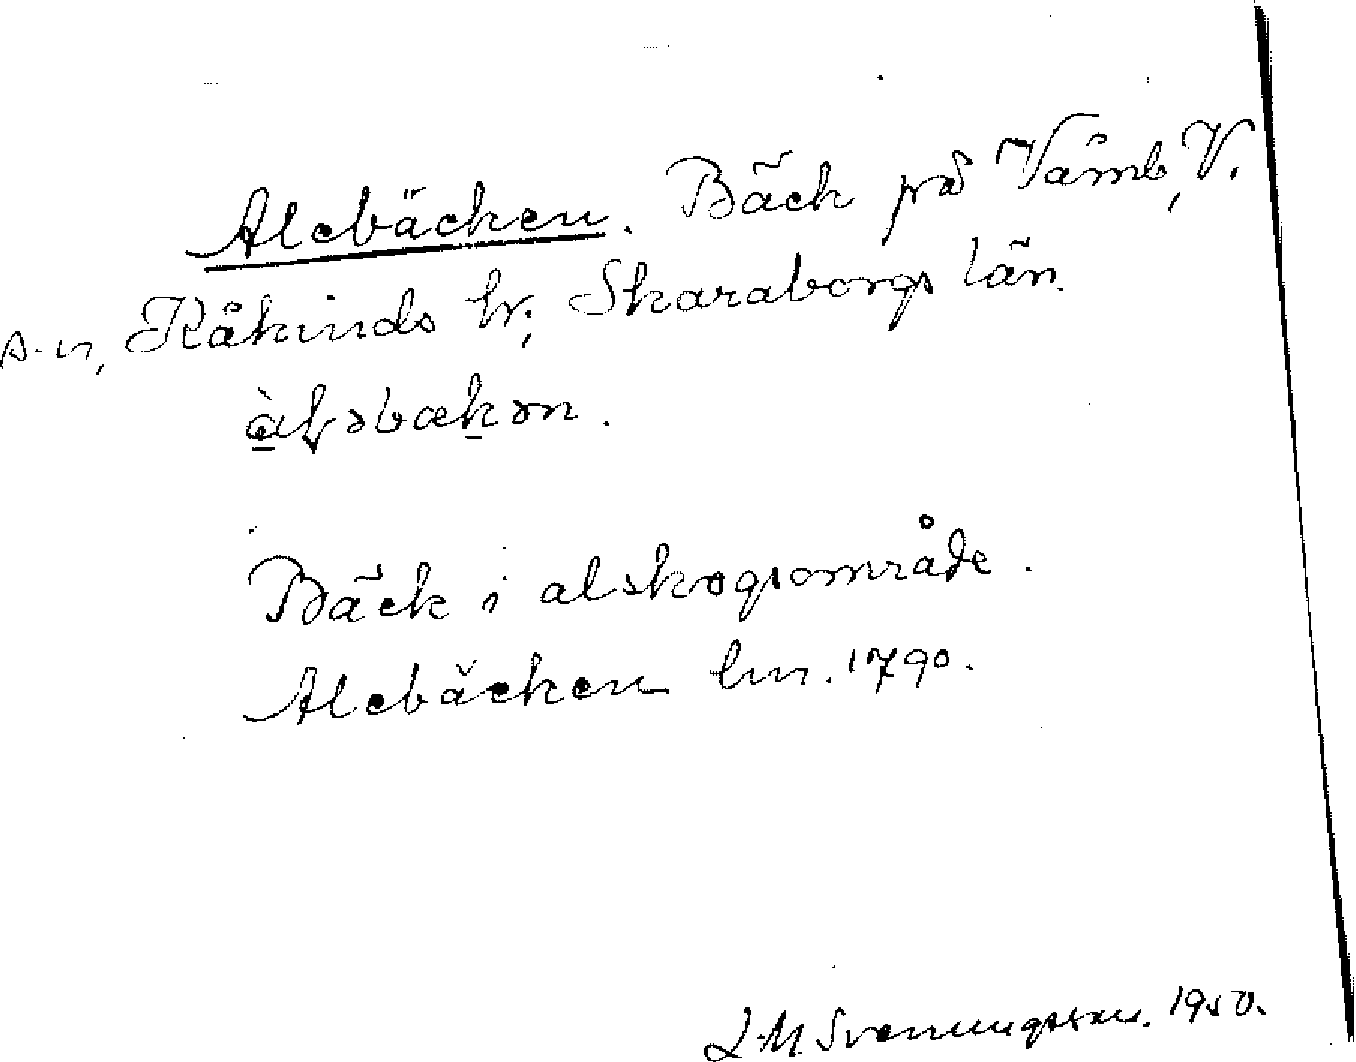 Alebäcken. Bäck på Våmb, V.
s-n, Kåkinds hr; Skaraborgs län.
àḷəbækən.
Bäck i alskogsområde.
Alebäcken lm. 1790.
L. M. Svenungsson. 1950.